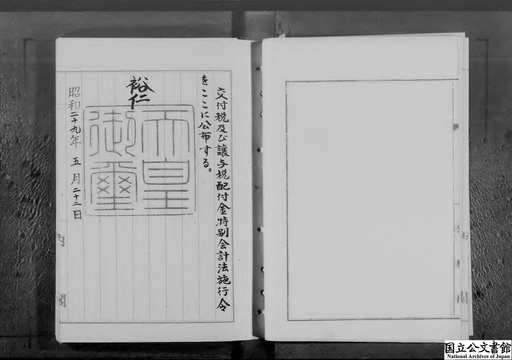 交付税及び譲与税配付金特別会計法施行令
をここに公布する。
裕仁
天皇
御璽
昭和二十九年五月二十二日
国立公文書館
National Archives of Japan